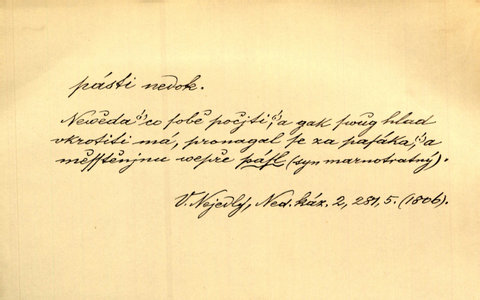 pásti nedok.
Newěda co sobě počjti, a gak swůg hlad
vkrotiti má, pronagal se za pasáka, a
měsstěnjnu wepře pásl (syn marnotratný).
V. Nejedlý, Ned. káz. 2, 281, 5. (1806).